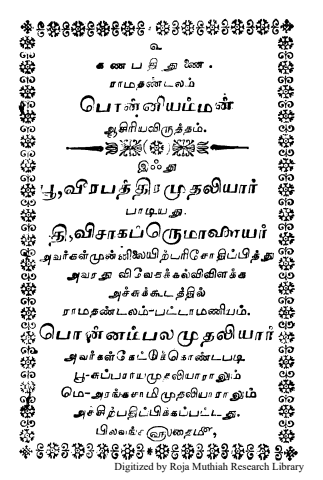 உ
கணபதிதுணை.
ராமதண்டலம்
பொன்னியம்மன்
ஆசிரியவிருத்தம்.
இஃது
பூ, வீரபத்திரமுதலியார்
பாடியது.
தி, விசாகப்பெருமாளையர்
அவர்கள்முன்னிலையிற்பரிசோதிப்பித்து
அவரது விவேகக்கல்விவிளக்க
அச்சுக்கூடத்தில்
ராமதண்டலம்-பட்டாமணியம்.
பொன்னம்பலமுதலியார்
அவர்கள்கேட்டுக்கொண்டபடி
பூ-சுப்பராயமுதலியாராலும்
மெ-அரங்கசாமிமுதலியாராலும்
அச்சிற்பதிப்பிக்கப்பட்டது.
பிலவங்க ளு தைமீ,
Digitized by Roja Muthiah Research Library